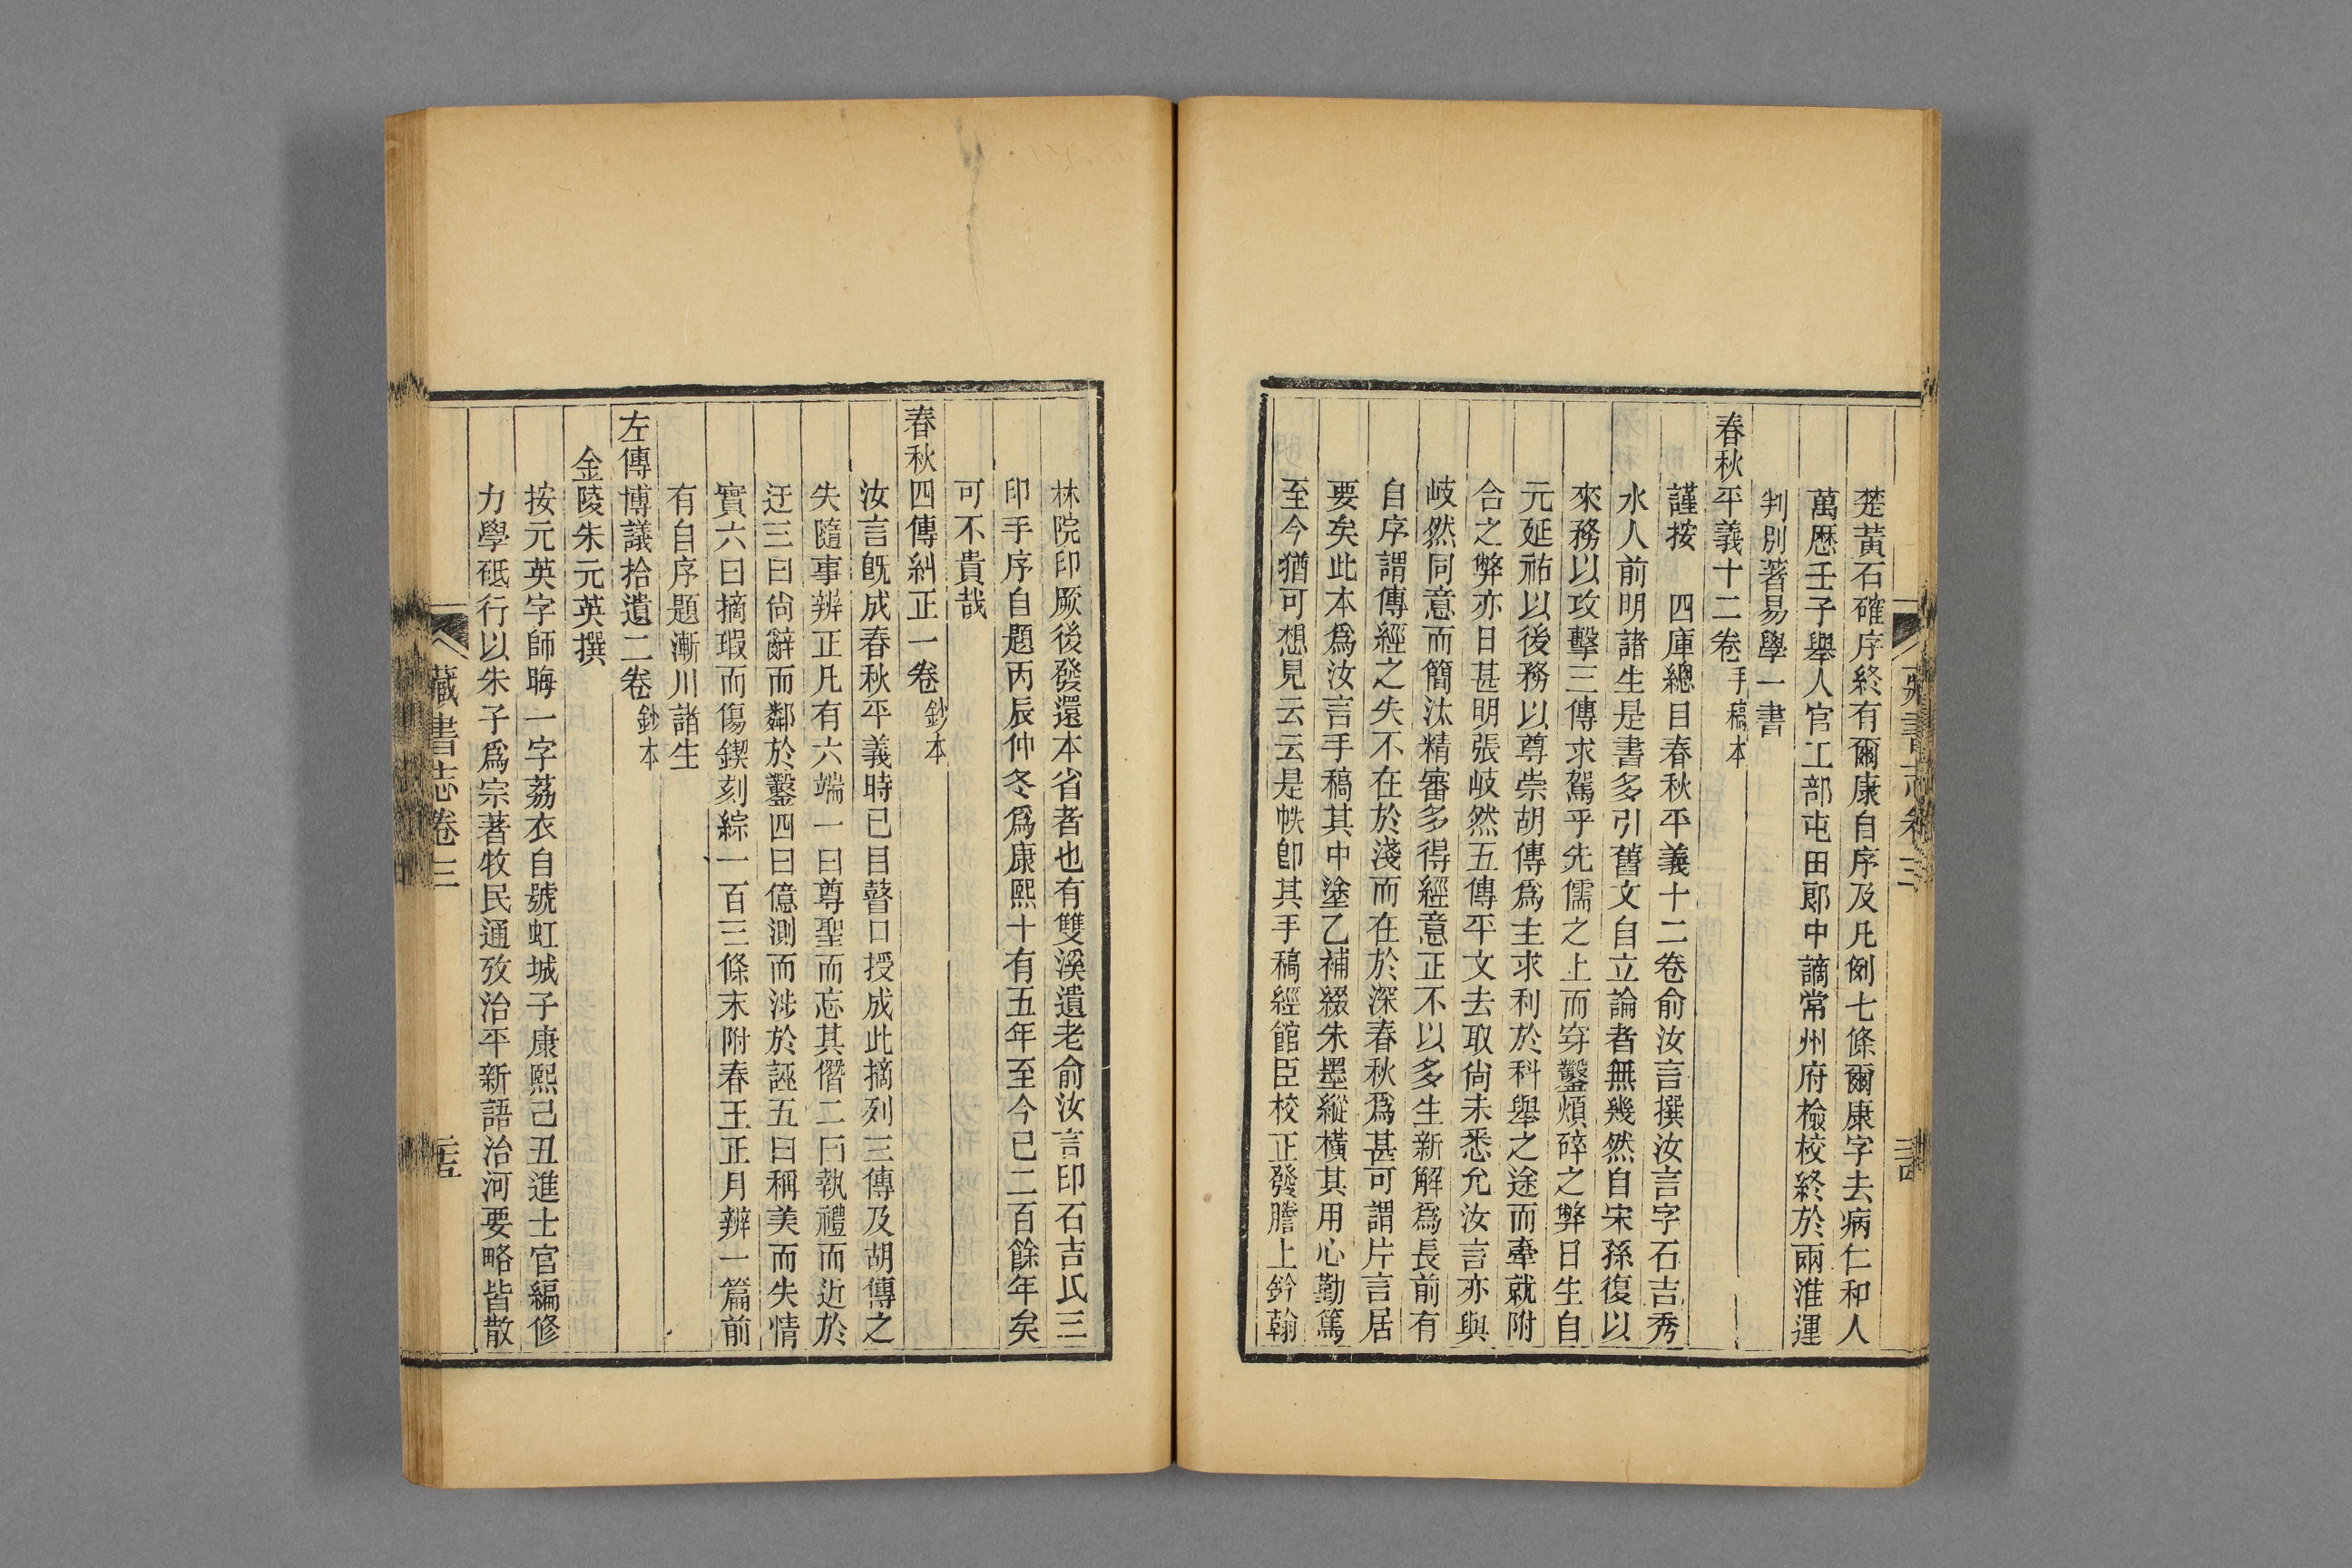 楚黃石確序終有爾康自序及凡例七條爾康字去病仁和人
萬歷壬子舉人官工部屯田郎中謫常州府檢校終於兩淮運
判別著易學一書
春秋平義十二卷手稿本
謹按　四庫總目春秋平義十二卷俞汝言撰汝言字石吉秀
水人前明諸生是書多引舊文自立論者無幾然自宋孫復以
來務以攻擊三傳求駕乎先儒之上而穿鑿煩碎之弊日生自
元延祐以後務以尊崇胡傳爲主求利於科舉之途而牽就附
合之弊亦日甚明張岐然五傳平文去取尙未悉允汝言亦與
岐然同意而簡汰精審多得經意正不以多生新解爲長前有
自序謂傳經之失不在於淺而在於深春秋爲甚可謂片言居
要矣此本爲汝言手稿其中塗乙補綴朱墨縱橫其用心勤篤
至今猶可想見云云是帙卽其手稿經館臣校正發謄上鈐翰
林院印厥後發還本省者也有雙溪遺老俞汝言印石吉氏三
印手序自題丙辰仲冬爲康熙十有五年至今已二百餘年矣
可不貴哉
春秋四傳糾正一卷鈔本
汝言旣成春秋平義時已目瞽口授成此摘列三傳及胡傳之
失隨事辨正凡有六端一曰尊聖而忘其僭二曰執禮而近於
迂三曰尙辭而鄰於鑿四曰億測而涉於誣五曰稱美而失情
實六曰摘瑕而傷鍥刻綜一百三條末附春王正月辨一篇前
有自序題漸川諸生
左傳博議拾遺二卷鈔本
金陵朱元英撰
按元英字師晦一字荔衣自號虹城子康熙己丑進士官編修
力學砥行以朱子爲宗著牧民通攷治平新語治河要略皆散
藏書志卷三